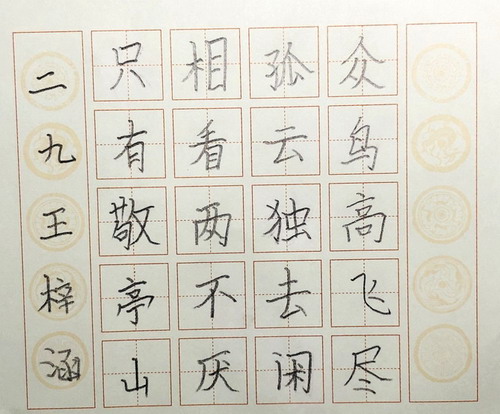 众鸟高飞尽
孤云独去闲
相看两不厌
只有敬亭山
二九王梓涵